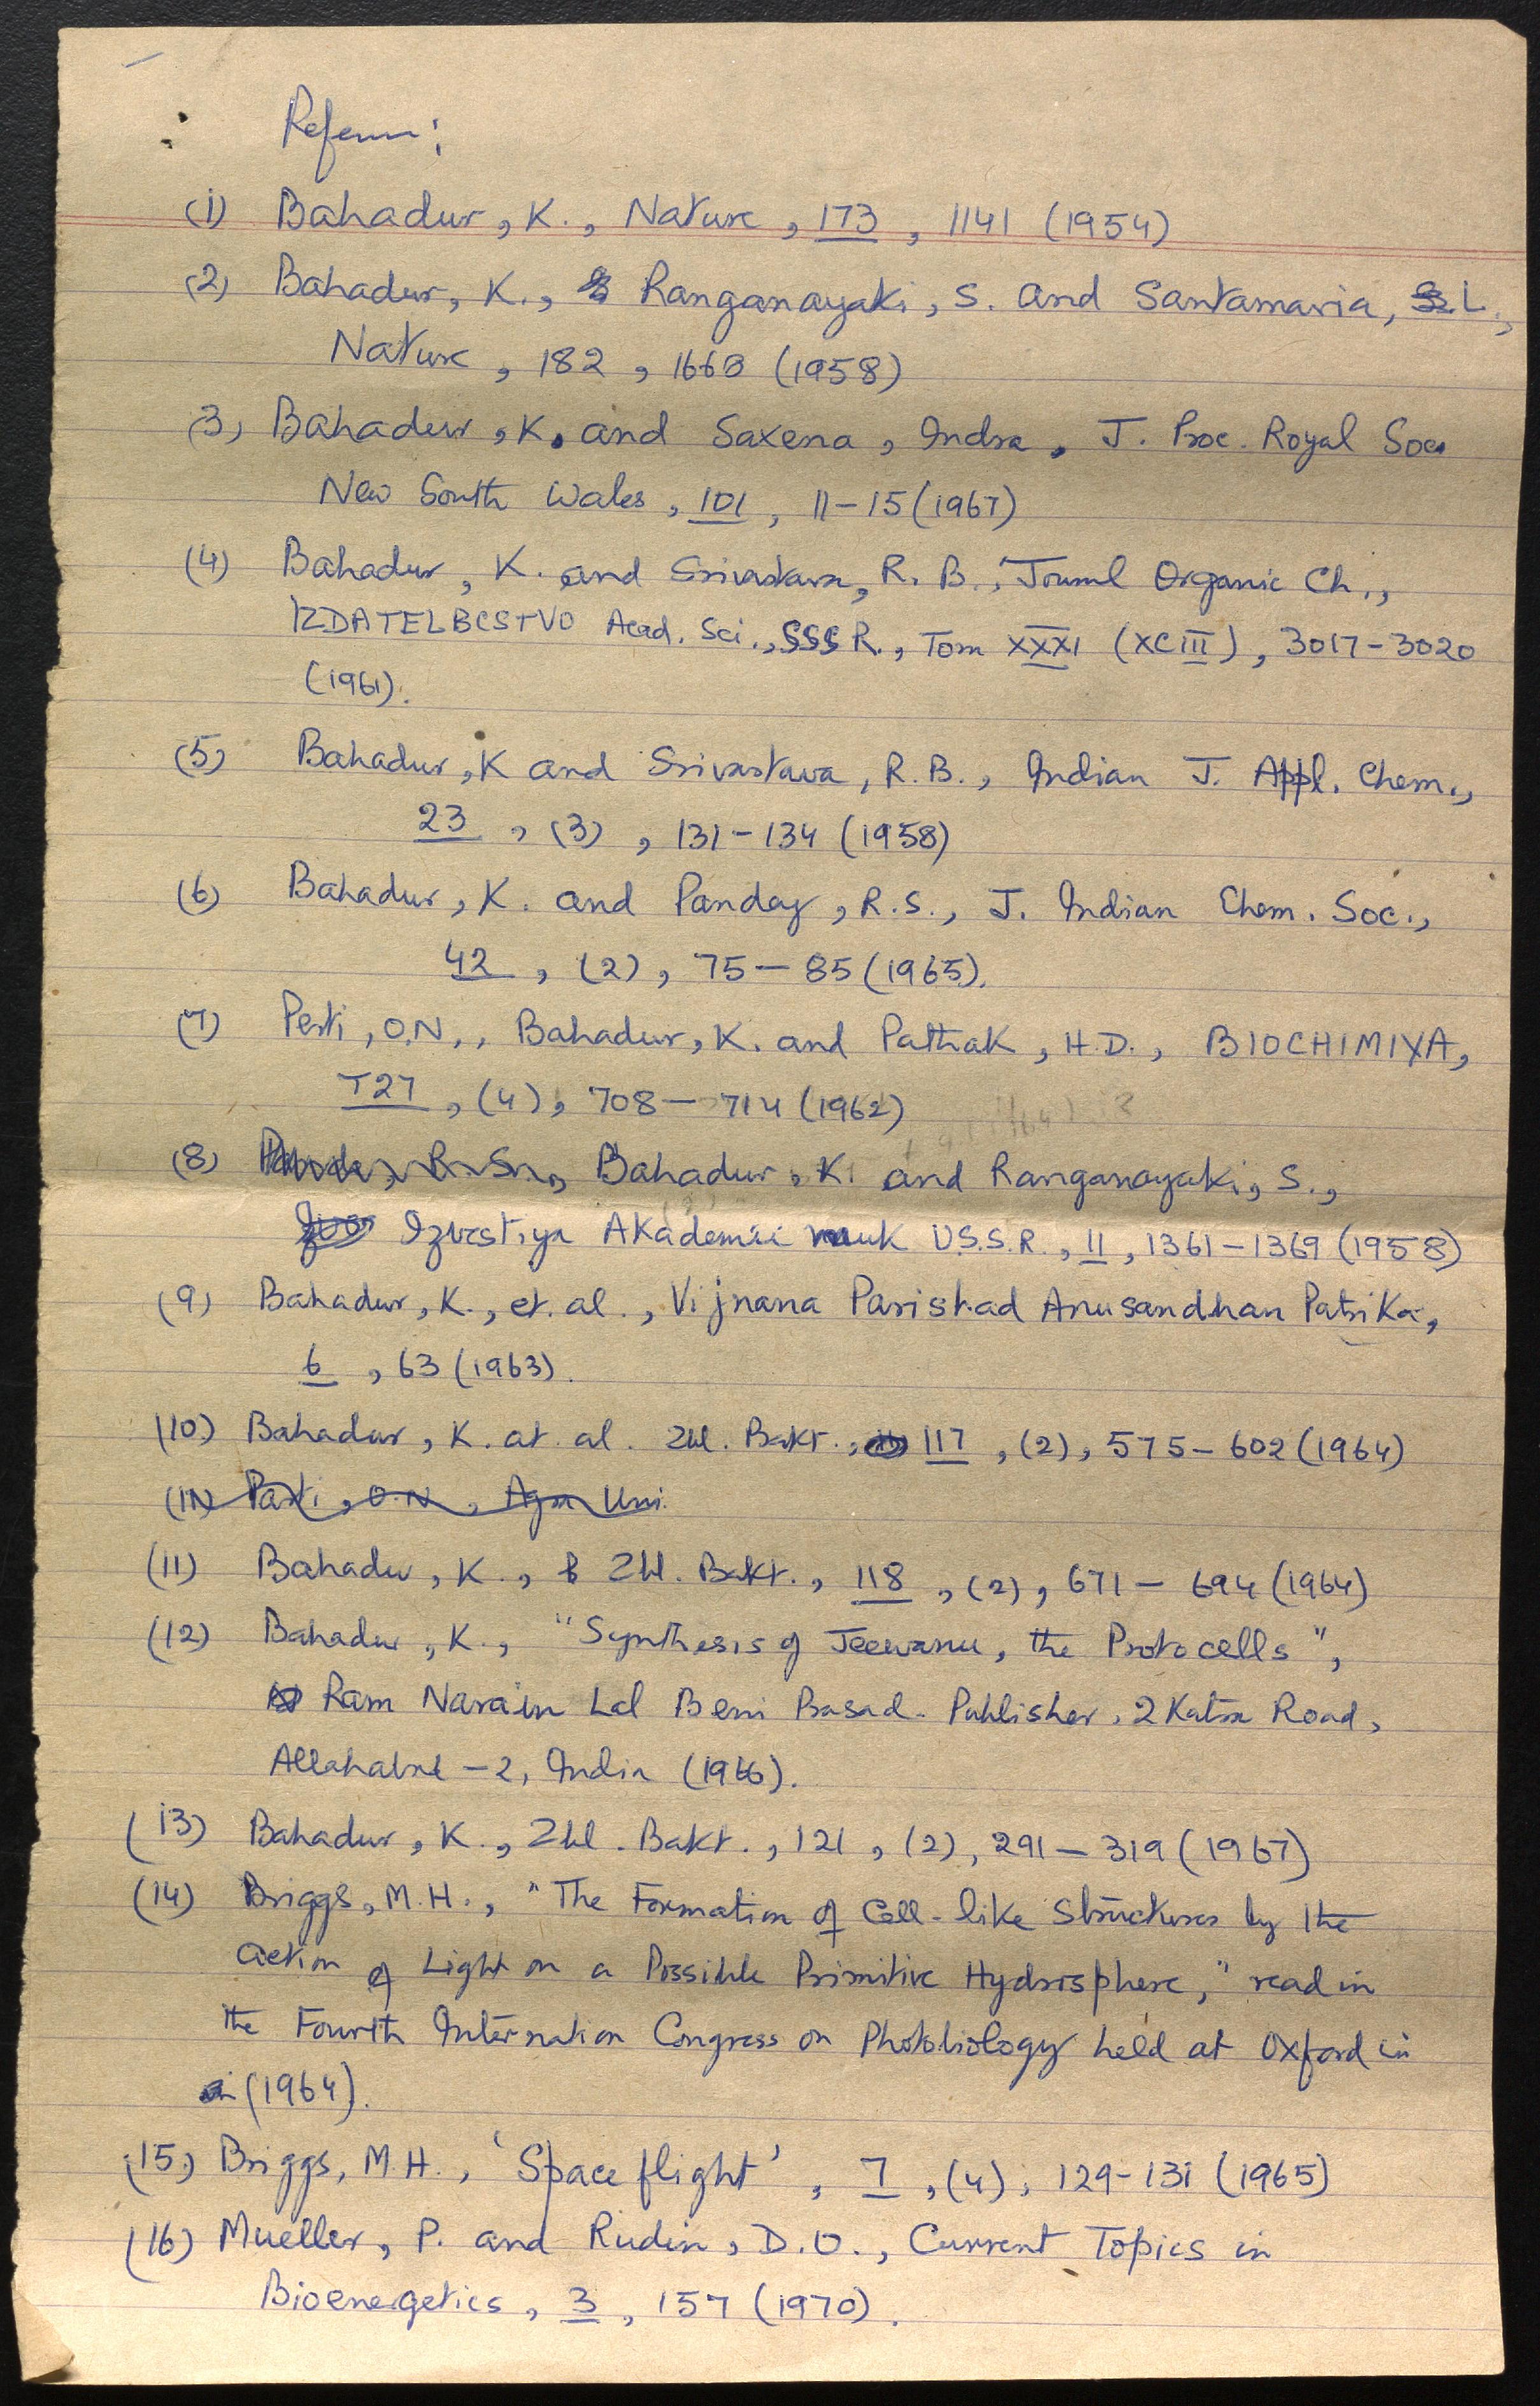 (1) Bahadur, K., Nature, 173, 1141 (1954)
(2) Bahadur, K., Ranganayaki, S. and Santamaria, L.,
Nature, 182, 1668 (1958)
(3) Bahadur, K. and Saxena, Indra, J. Proc. Royal Soc.
New South Wales, 101, 11-15 (1967)
(4) Bahadur, K. and Srivastava, R. B., Journl Organic Ch.,
IZDATELBCSTVO Acad. Sci., SSSR., Tom XXXI (XCIII), 3017-3020
(1961).
(5) Bahadur, K and Srivastava, R.B., Indian J. Appl. Chem.,
23, (3), 131-134 (1958)
(6) Bahadur, K. and Panday, R.S., J. Indian Chem. Soc.,
42, (2), 75-85 (1965).
(7) Perti, O.N., Bahadur, K. and Pathak, H.D., BIOCHIMIYA,
T27, (4), 708-714 (1962)
(8) Bahadur, K. and Ranganayaki, S.,
Izvestiya Akademii nauk U.S.S.R., 11, 1361-1369 (1958)
(9) Bahadur, K., et. al., Vijnana Parishad Anusandhan Patrika,
6, 63 (1963).
(10) Bahadur, K. at. al. Zbl. Bakt., 117, (2), 575-602 (1964)
(11) Perti, O.N., Agra Uni.
(11) Bahadur, K., Zbl. Bakt., 118, (2), 671-694 (1964)
(12) Bahadur, K., "Synthesis of Jeewanu, the Protocells",
Ram Narain Lal Beni Prasad. Publisher, 2 Katra Road,
Allahabad-2, India (1966).
(13) Bahadur, K., Zbl. Bakt., 121, (2), 291-319 (1967)
(14) Briggs, M.H., "The Formation of Cell-like Structures by the
action of Light on a Possible Primitive Hydrosphere," read in
the Fourth Internation Congress on Photobiology held at Oxford in
(1964).
(15) Briggs, M.H., 'Space flight', 7, (4), 129-131 (1965)
(16) Mueller, P. and Rudin, D.O., Current Topics in
Bioenergetics, 3, 157 (1970).